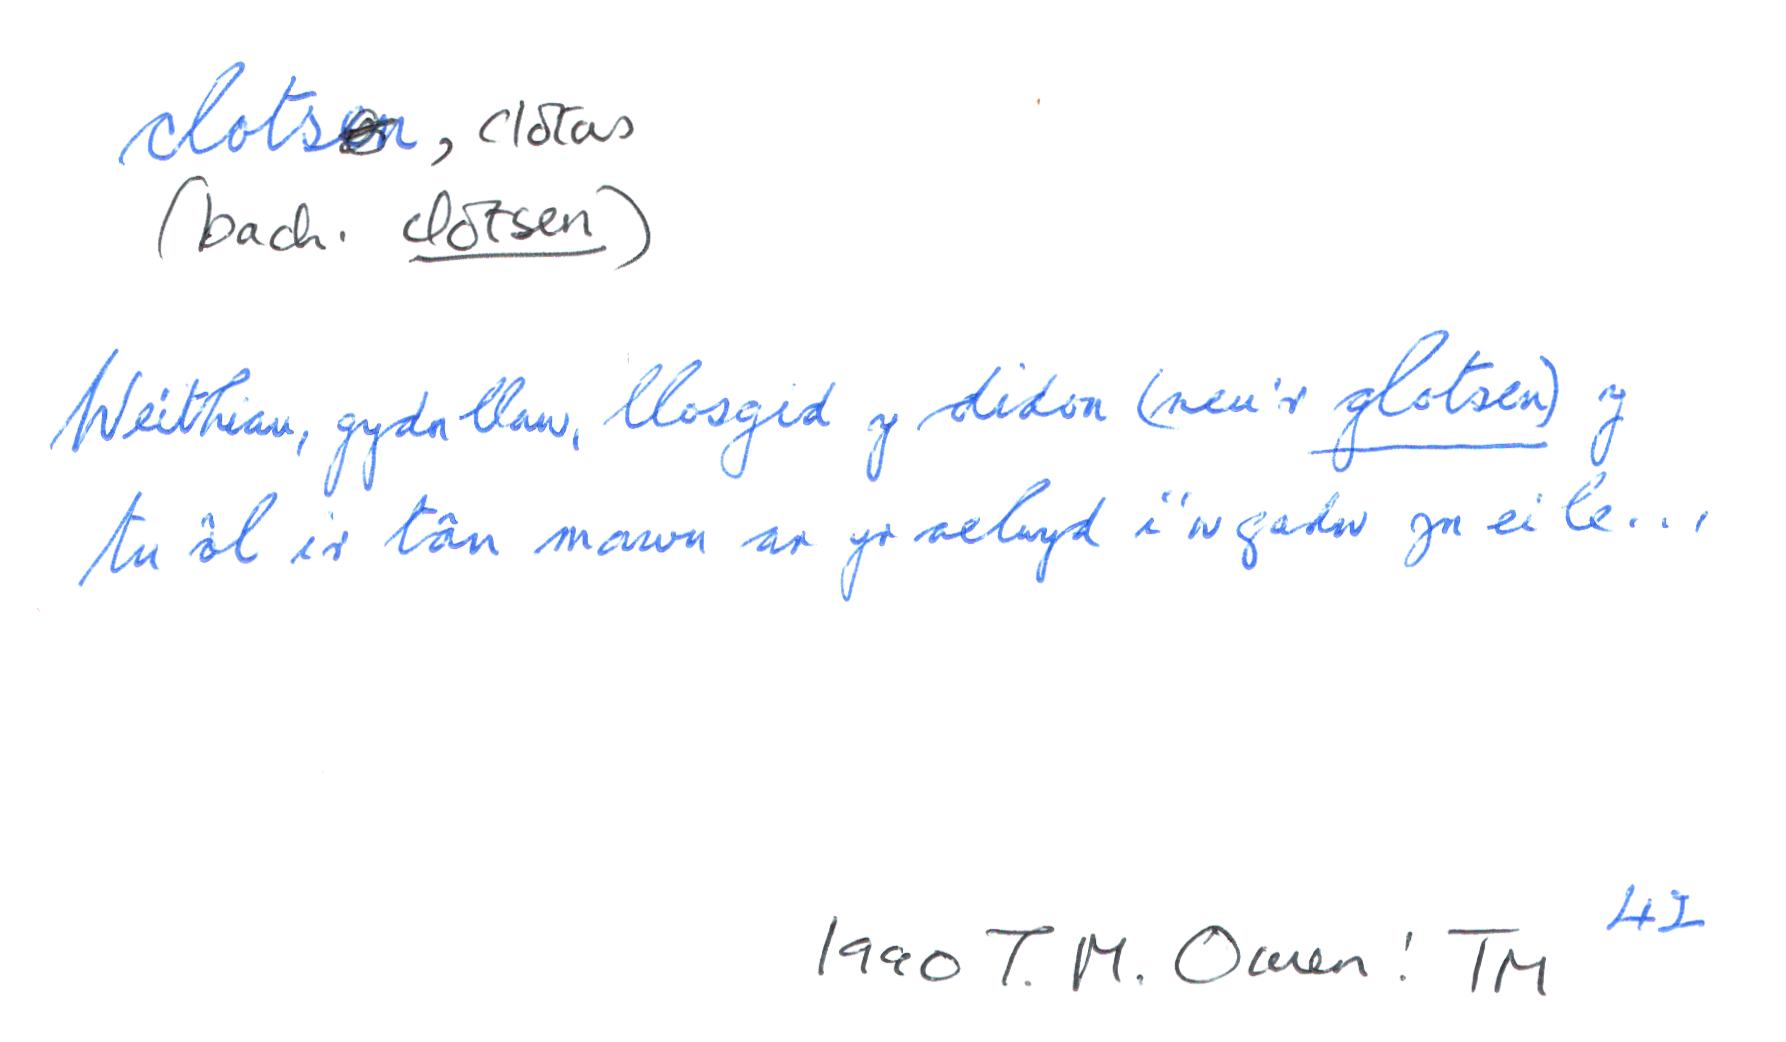 clotsen, clotas
(bach. clotsen)
Weithiau, gydr llaw, llosgid y didon (neu'r glotsen) y
tu ôl i'r tân mawn ar yr aelwyd i'w gadw yn ei le...
42
1990 T. M. Owen: TM